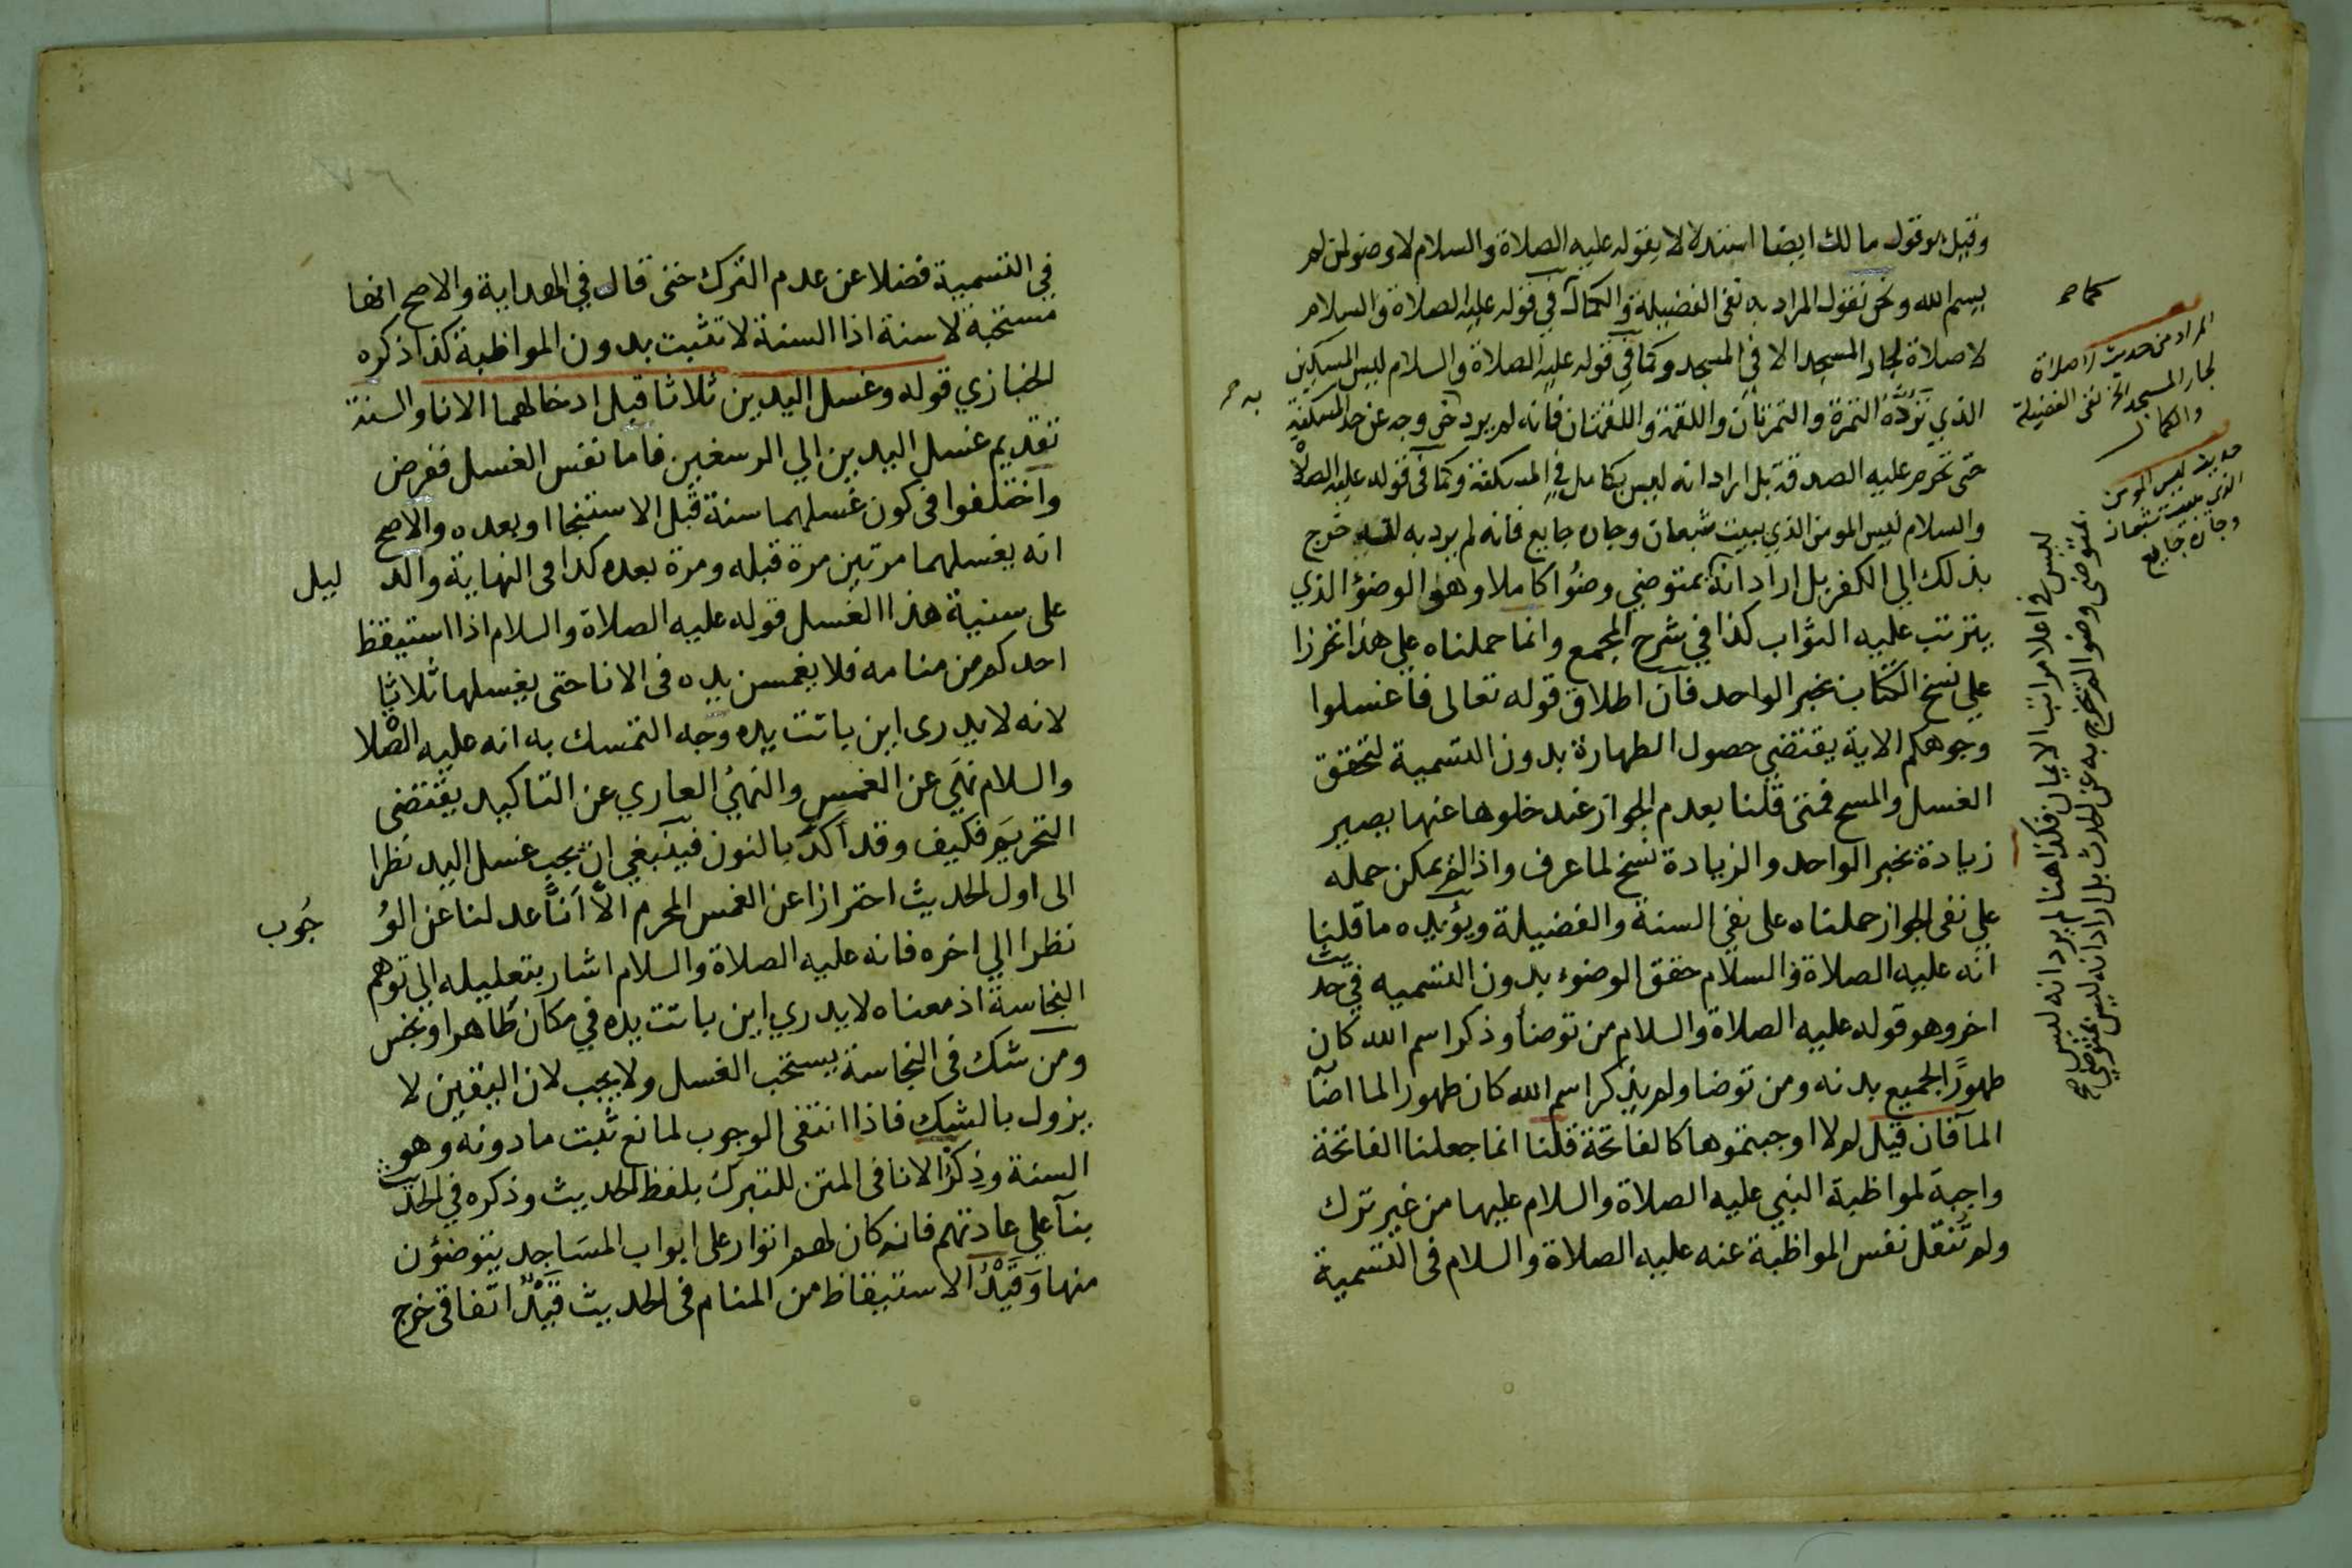 وقيل هو قول مالك ايضا استدلالا بقوله عليه الصلاة والسلام لا وضو لمن لم
يسم الله ونحن نقول المراد به نفى الفضيلة والكمال كما في قوله عليه الصلاة والسلام
لا صلاة لجار المسجد الا في المسجد وكما في قوله عليه الصلاة والسلام ليس المسكين
الذي تَرُدُّهُ التمرة والتمرتان واللقمة واللقمتان فانه لم يرد به خروجه عن حد المسكنة
حتى تحرم عليه الصدقة بل اراد انه ليس بكامل في المسكنة وكما في قوله عليه الصلاة
والسلام ليس المومن الذي يبيت شبعان وجاره جايع فانه لم يرد به انه خرج
بذلك الي الكفر بل اراد انه بمتوضي وضوُا كاملا وهو الوضوُ الذي
يترتب عليه الثواب كذا في شرح المجمع وانما حملناه علي هذا تحرزا
علي نسخ الكتاب بخبر الواحد فان اطلاق قوله تعالى فاغسلوا
وجوهكم الاية يقتضي حصول الطهارة بدون التسمية لتحقق
الغسل والمسح فمتى قلنا بعدم الجواز عند خلوها عنها يصير
زيادة بخبر الواحد والزيادة نسخ لما عرف واذا لم يمكن حمله
علي نفى الجواز حملناه على نفي السنة والفضيلة ويؤيده ما قلنا
انه عليه الصلاة والسلام حقق الوضوء بدون التسميه في حديث
اخر وهو قوله عليه الصلاة والسلام من توضأ وذكر اسم الله كان
طهورًا لجميع بدنه ومن توضا ولم يذكر اسم الله كان طهورا لما اصاب
الما فان قيل لولا اوجبتموها كالفاتحة قلنا انما جعلنا الفاتحة
واجبة لمواظبة النبي عليه الصلاة والسلام عليها من غير ترك
ولم تنقل نفس المواظبة عنه عليه الصلاة والسلام فى التسمية
كما صح
المراد من حديث لا صلاة
لجار المسجد الخ نفى الفضيلة
والكمال
حديث ليس المومن
الذي يبيت شبعان
وجاره جايع
ليس في اعلا مراتب الايمان فكذا هنا لم يرد انه ليس
بمتوضى وضوا لم يخرج به عن الحدث بل اراد انه ليس بمتوضي صح
به صح
في التسمية فضلا عن عدم الترك حتى قال في الهداية والاصح انها
مستحبة لا سنة اذا السنة لا تثبت بدون المواظبة كذا ذكره
الخبازي قوله وغسل اليدين ثلاثا قبل ادخالهما الانا والسنة
تقديم غسل اليدين الي الرسغين فاما نفس الغسل ففرض
واختلفوا فى كون غسلهما سنة قبل الاستنجا او بعده والاصح
انه يغسلهما مرتين مرة قبله ومرة بعده كذا فى النهاية والد ليل
على سنية هذا الغسل قوله عليه الصلاة والسلام اذا استيقظ
احدكم من منامه فلا يغمسن يده فى الانا حتى يغسلها ثلاثا
لانه لا يدرى اين باتت يده وجه التمسك به انه عليه الصلاة
والسلام نَهَي عن الغمس والنهيُ العاري عن التاكيد يقتضى
التحريم فكيف وقد أكّدَ بالنون فينبغي ان يجب غسل اليد نظرا
الى اول الحديث احترازا عن الغمس المحرم الَّا أنَّا عدلنا عن الوُ جُوب
نظرا الي اخره فانه عليه الصلاة والسلام اشار بتعليله الي توهم
النجاسة اذ معناه لا يدري اين باتت يده في مكان طاهر او نجس
ومن شك فى النجاسة يستحب الغسل ولا يجب لان اليقين لا
يزول بالشك فاذا انتفى الوجوب لمانع ثبت ما دونه وهو
السنة وذِكْرُ الانا فى المتن للتبرك بلفظ الحديث وذكره في الحديث
بنآ علي عادتهم فانه كان لهم اتوار على ابواب المسَاجد يتوضؤن
منها وَقَيْدُ الاستيقاظ من المنام فى الحديث قَيْدٌ اتفاقى خرج